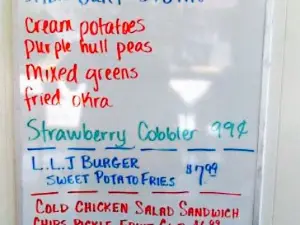 Cream potatoes
Purple hull peas
Mixed greens
fried okra
Strawberry Cobbler 99¢
L.L.J BURGER $7.99
SWEET POTATO FRIES
COLD CHICKEN SALAD SANDWICH
CHIPS PICKLE FRUIT